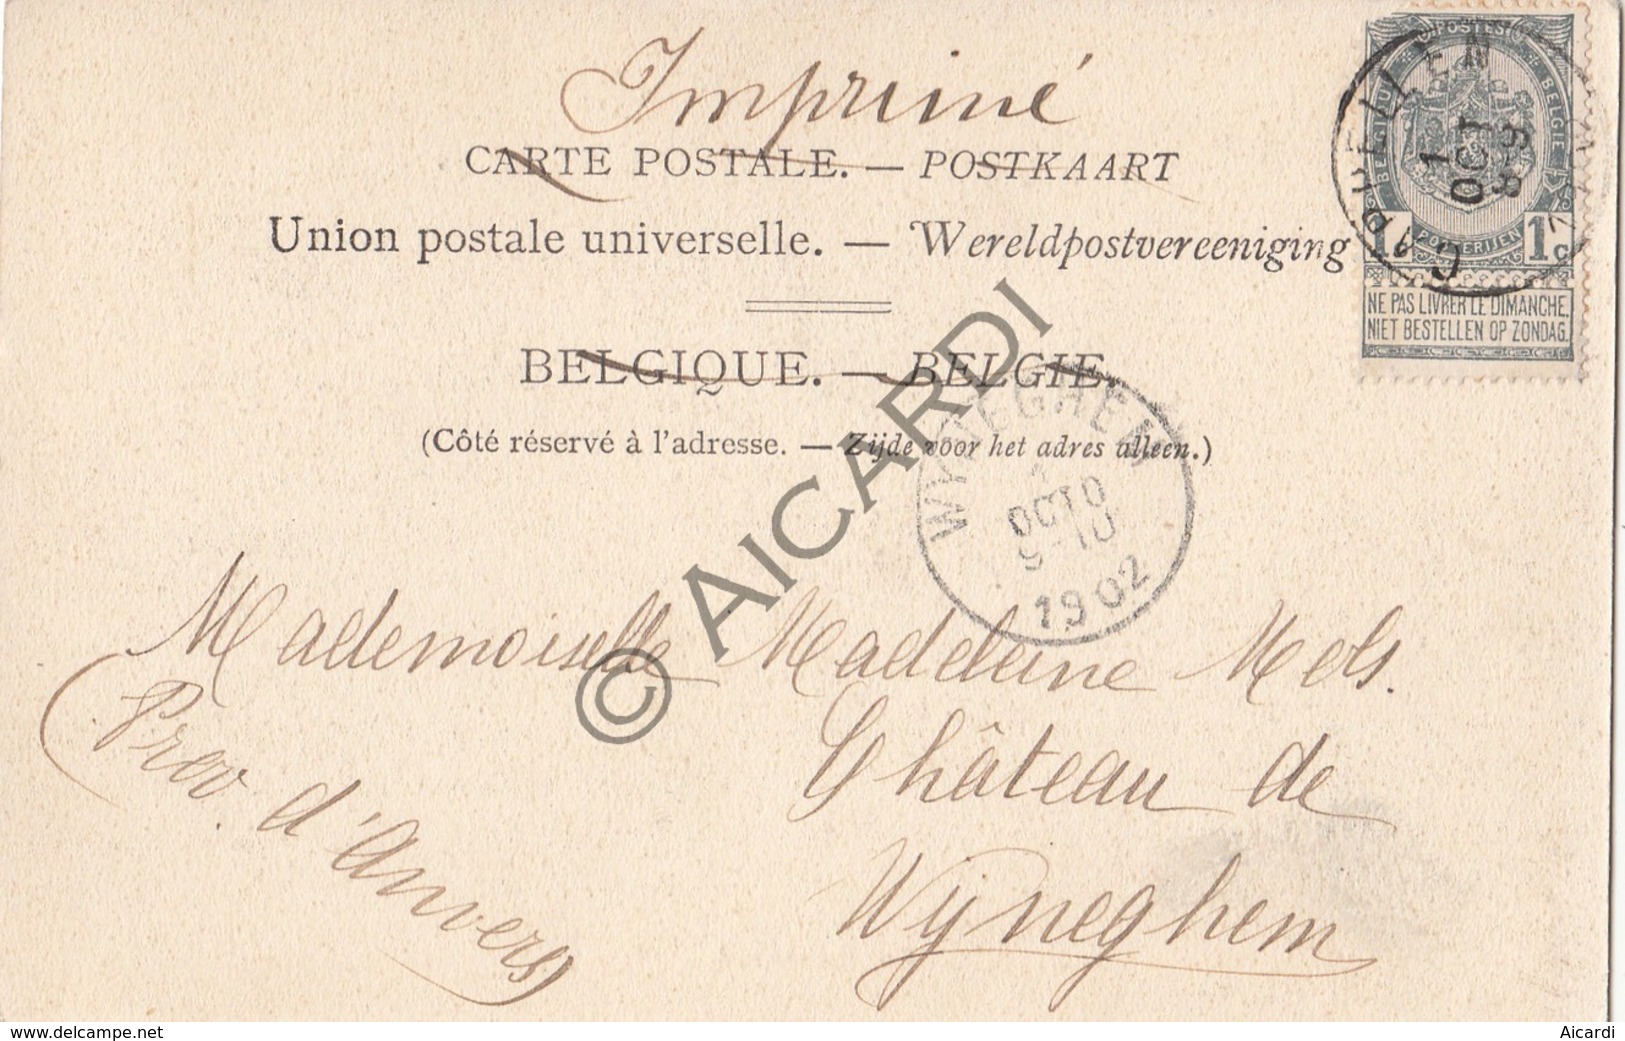 Imprimé
CARTE POSTALE. — POSTKAART
Union postale universelle. — Wereldpostvereeniging
BELGIQUE. — BELGIE.
(Côté réservé à l'adresse. — Zijde voor het adres alleen.)
POSTES
BELGIQUE BELGIE
POSTERIJEN
1 1c
NE PAS LIVRER LE DIMANCHE.
NIET BESTELLEN OP ZONDAG.
CAPPELLEN
1
OCT
8-9
WYNEGHEM
OCTO
9-10
1902
© AICARDI
Mademoiselle Madeleine Mels.
Château de
Wijneghem
(Prov. d'Anvers)
www.delcampe.net
Aicardi